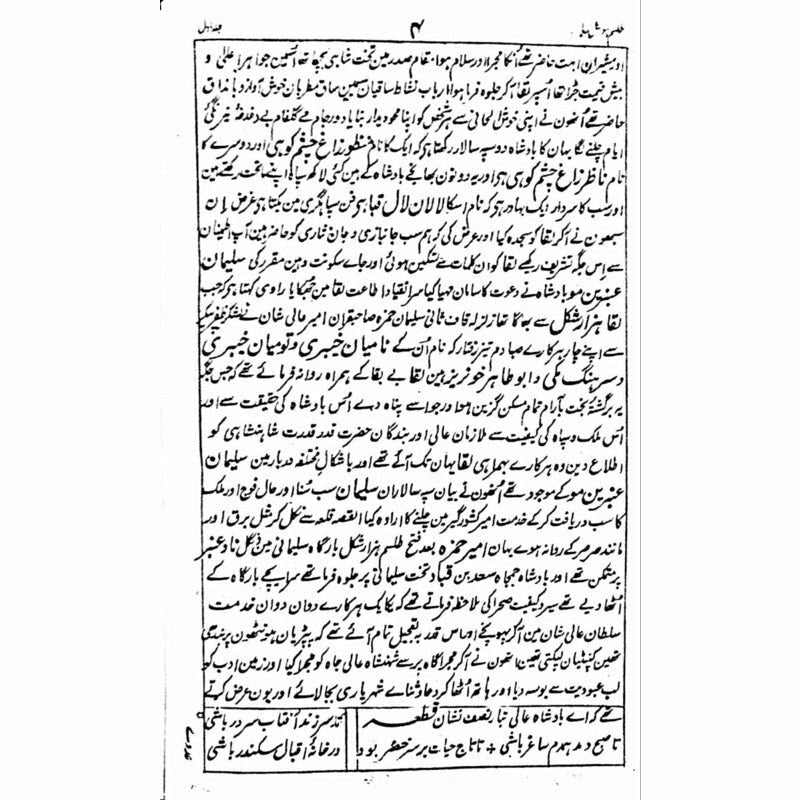 طلسم ہوش ربا
۴
جلد اول
اور مشیران ابہت حاضر تھے انکا مجرا اور سلام ہوا مقام صدر مین تخت شاہی بچھا تھا اسمین جواہر اعلیٰ و
بیش قیمت جڑا تھا اسپر لقا آ کر جلوہ فرما ہوا ارباب نشاط ساقیان سیمین ساق مطربان خوش آواز و با مذاق
حاضر تھے اُنھون نے اپنی خوش الحانی سے ہر شخص کو اپنا محو دیدار بنایا دور جام مے گلفام بے دغدغہ نیرنگی
ایام چلنے لگا بیان کا بادشاہ دو سپہ سالار رکھتا ہو کہ ایک کا نام منظور زاغ چشم کوہی اور دوسرے کا
نام ناظر زاغ چشم کوہی ہو اور یہ دونون بھانجے بادشاہ کے ہین کئی لاکھ سپاہ اپنے ماتحت رکھتے ہین
اور سب کا سردار ایک بہادر ہو کہ نام اسکا لالان لال قبا ہو فن سپاہگری مین یکتا ہو غرض ان
سبھون نے آ کر لقا کو سجدہ کیا اور عرض کی کہ ہم سب جانبازی و جان نثاری کو حاضر ہین آپ اطمینان
سے اس جگہ تشریف رکھیے لقا کو ان کلمات سے تسکین ہوئی اور جاے سکونت وہین مقرر کی سلیمان
عنبرین مو بادشاہ نے دعوت کا سامان مہیا کیا سر انقیاد اطاعت لقا مین جھکایا راوی کہتا ہو کہ جب
لقا ہزار شکل سے بھاگا تھا زلزلہ قاف ثانی سلیمان حمزہ صاحبقران امیر عالی شان نے لشکر ظفر پیکر
سے اپنے چار ہرکارے صبا دم تیز رفتار کہ نام اُن کے نامیان خیبری و تومیان خیبری
و سرہنگ مکی و ابو طاہر خونریز ہین لقا بے بقا کے ہمراہ روانہ فرمائے تھے کہ جس جگہ
یہ برگشتہ بخت بآرام تمام مسکن گزین ہو اور جو اسے پناہ دے اُس بادشاہ کی حقیقت سے اور
اُس ملک و سپاہ کی کیفیت سے ملازمان عالی اور بندگان حضرت قدر قدرت شاہنشاہی کو
اطلاع دین وہ ہرکارے ہمراہی لقا یہان تک آئے تھے اور باشکال مختلفہ دربار مین سلیمان
عنبرین مو کے موجود تھے اُنھون نے بیان سپہ سالاران سلیمان سب سُنا اور حال فوج اور ملک
کا سب دریافت کر کے خدمت امیر کشورگیر مین چلنے کا ارادہ کیا القصہ قلعہ سے نکل کر مثل برق اور
مانند صرصر کے روانہ ہوے یہان امیر حمزہ بعد فتح طلسم ہزار شکل بارگاہ سلیمانی مین دنگل ناد عنبر
پر متمکن تھے اور بادشاہ جمجاہ سعد بن قباد تخت سلیمانی پر جلوہ فرما تھے سراپچے بارگاہ کے
اُٹھا دیے تھے سیر و کیفیت صحرا کی ملاحظہ فرماتے تھے کہ یکایک ہرکارے دوان دوان خدمت
سلطان عالی شان مین آ کر پہونچے اور اس قدر بہ تعجیل تمام آئے تھے کہ پپڑیان ہونٹھون پر بندھی
تھین کنپٹیان ٹپکتی تھین انھون نے آ کر مجرا گاہ پر سے شہنشاہ عالی جاہ کو مجرا کیا اور زمین ادب کو
لب عبودیت سے بوسہ دیا اور ہاتھ اُٹھا کر دعا و ثناے شہریاری بجا لائے اور یون عرض کرتے
تھے کہ اے بادشاہ عالی تبار نصفت نشان قطعہ
تا صبح دمد ہمدم ساغر باشی + تا تاج حیات بر سر خضر بود
در خانۂ اقبال سکندر باشی